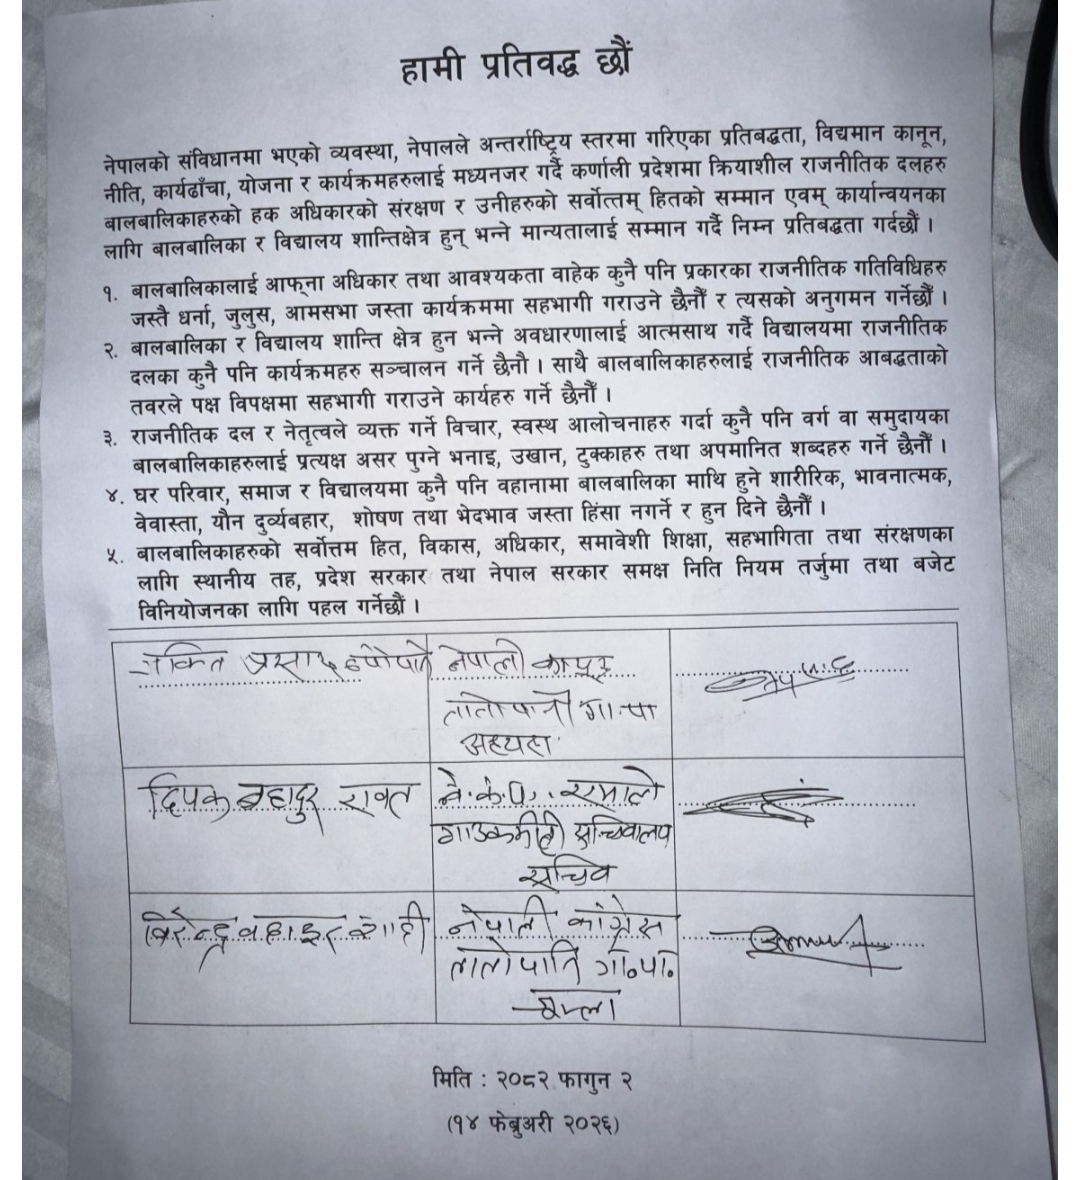 हामी प्रतिवद्ध छौं
नेपालको संविधानमा भएको व्यवस्था, नेपालले अन्तर्राष्ट्रिय स्तरमा गरिएका प्रतिबद्धता, विद्यमान कानून,
नीति, कार्यढाँचा, योजना र कार्यक्रमहरुलाई मध्यनजर गर्दै कर्णाली प्रदेशमा क्रियाशील राजनीतिक दलहरु
बालबालिकाहरुको हक अधिकारको संरक्षण र उनीहरुको सर्वोत्तम् हितको सम्मान एवम् कार्यान्वयनका
लागि बालबालिका र विद्यालय शान्तिक्षेत्र हुन् भन्ने मान्यतालाई सम्मान गर्दै निम्न प्रतिबद्धता गर्दछौं ।
१. बालबालिकालाई आफ्ना अधिकार तथा आवश्यकता वाहेक कुनै पनि प्रकारका राजनीतिक गतिविधिहरु
जस्तै धर्ना, जुलुस, आमसभा जस्ता कार्यक्रममा सहभागी गराउने छैनौं र त्यसको अनुगमन गर्नेछौं ।
२. बालबालिका र विद्यालय शान्ति क्षेत्र हुन भन्ने अवधारणालाई आत्मसाथ गर्दै विद्यालयमा राजनीतिक
दलका कुनै पनि कार्यक्रमहरु सञ्चालन गर्ने छैनौ । साथै बालबालिकाहरुलाई राजनीतिक आबद्धताको
तवरले पक्ष विपक्षमा सहभागी गराउने कार्यहरु गर्ने छैनौं ।
३. राजनीतिक दल र नेतृत्वले व्यक्त गर्ने विचार, स्वस्थ आलोचनाहरु गर्दा कुनै पनि वर्ग वा समुदायका
बालबालिकाहरुलाई प्रत्यक्ष असर पुग्ने भनाइ, उखान, टुक्काहरु तथा अपमानित शब्दहरु गर्ने छैनौं ।
४. घर परिवार, समाज र विद्यालयमा कुनै पनि वहानामा बालबालिका माथि हुने शारीरिक, भावनात्मक,
वेवास्ता, यौन दुर्व्यबहार, शोषण तथा भेदभाव जस्ता हिंसा नगर्ने र हुन दिने छैनौं ।
५. बालबालिकाहरुको सर्वोत्तम हित, विकास, अधिकार, समावेशी शिक्षा, सहभागिता तथा संरक्षणका
लागि स्थानीय तह, प्रदेश सरकार तथा नेपाल सरकार समक्ष निति नियम तर्जुमा तथा बजेट
विनियोजनका लागि पहल गर्नेछौं ।
प्रसाद नेपाली
तातोपानी गा.पा
दिपक बहादुर रावत ने.क.पा. एमाले
सचिवालय
सचिव
नेपाली कांग्रेस
तातोपानि गा॰पा॰
मिति : २०८२ फागुन २
(१४ फेब्रुअरी २०२६)